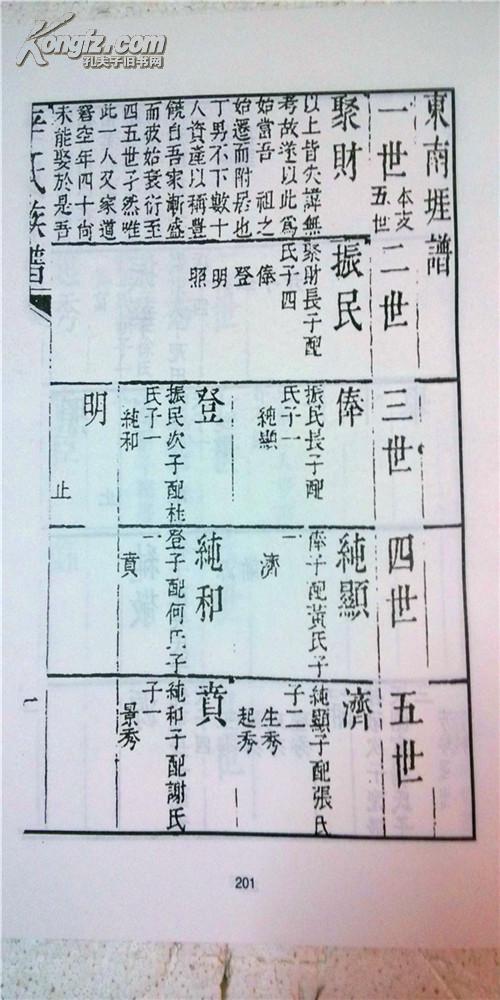 Kongfz.com
孔夫子旧书网
東南堐譜
一世
本支
五世
二世
三世
四世
五世
聚財
以上皆失諱無
考故遂以此為
始當吾祖之
始遷而附居也
丁男不下數十
人資產以稱豊
饒自吾家漸盛
而彼始衰衍至
四五世孑然唯
此一人又家道
窘空年四十尚
未能娶於是吾
振民
聚財長子配
氏子四
俸
登
明
照
俸
振民長子配
氏子一
純顯
登
振民次子配杜
氏子一
純和
明
止
純顯
俸子配黃氏子
一
濟
純和
登子配何氏子
一
賁
濟
純顯子配張氏
子二
生秀
起秀
賁
純和子配謝氏
子一
景秀
氏族譜
一
201